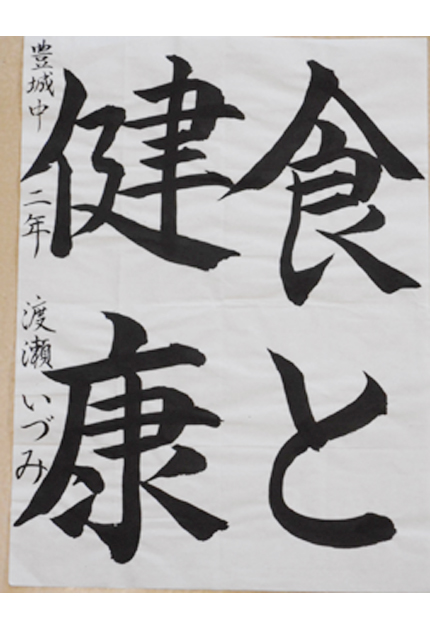 食と
健康
豊城中 二年 渡瀬 いづみ